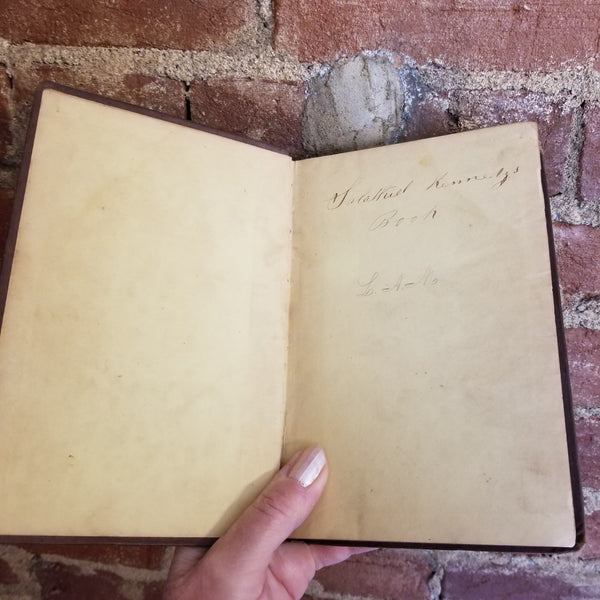 Salathiel Kennedy's
Book
L. A. N.